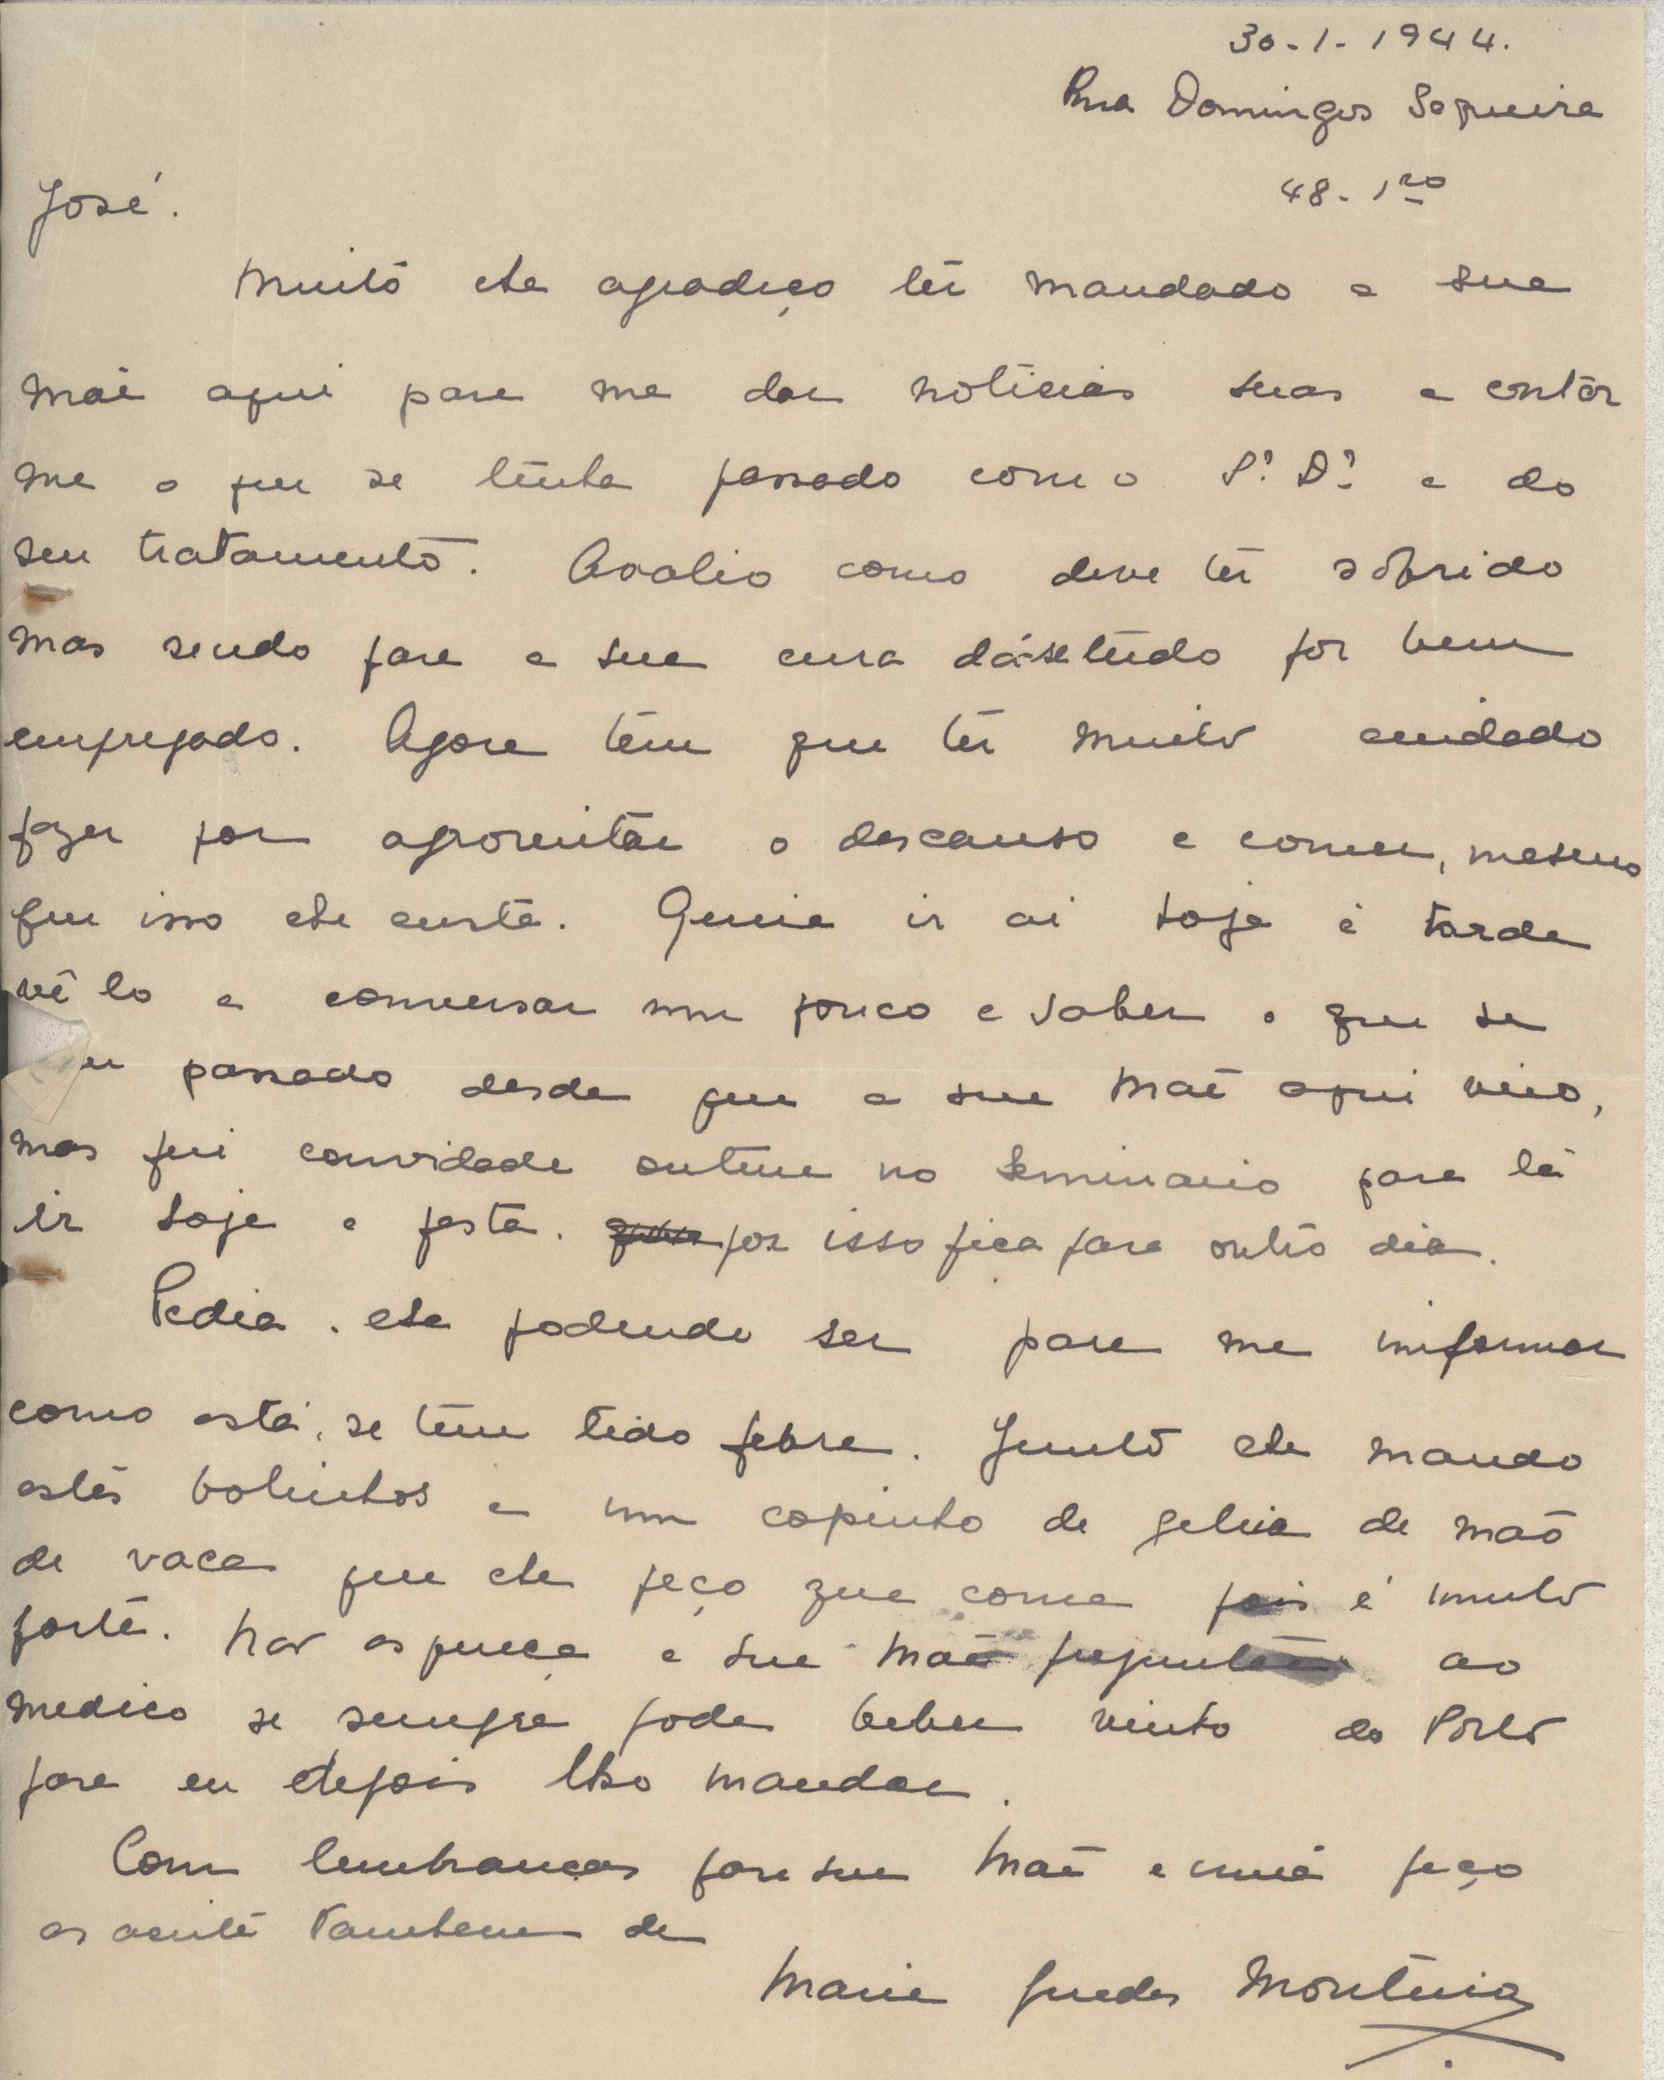 30-1-1944.
Rua Domingos Sequeira
48-1ro
José.
Muito lhe agradeço têr mandado a sua
mãe aqui para me dar noticias suas e contar
me o que se tinha passado com o Sr. Dr. e do
seu tratamento. Avalio como deve têr sofrido
mas sendo para a sua cura dá-se tudo por bem
empregado. Agora têm que têr muito cuidado
fazer por aproveitar o descanso e comer, mesmo
que isso lhe custe. Queria ir ai hoje á tarde
vê lo e conversar um pouco e saber o que se
passado desde que a sua Mãe aqui veio,
mas fui convidada ontem no Seminario para lá
ir hoje a festa. por isso fica para outro dia.
Pedia. lhe podendo ser para me informar
como está, se têm tido febre. Junto lhe mando
estes bolinhos e um copinho de geleia de mão
de vaca que lhe peço que coma pois é muito
forte. Não esqueça a sua Mãe preguntar ao
medico se sempre pode beber vinho do Porto
para eu depois lho mandar.
Com lembranças para sua Mãe e irmã peço
as aceite tambem de
Maria Guedes